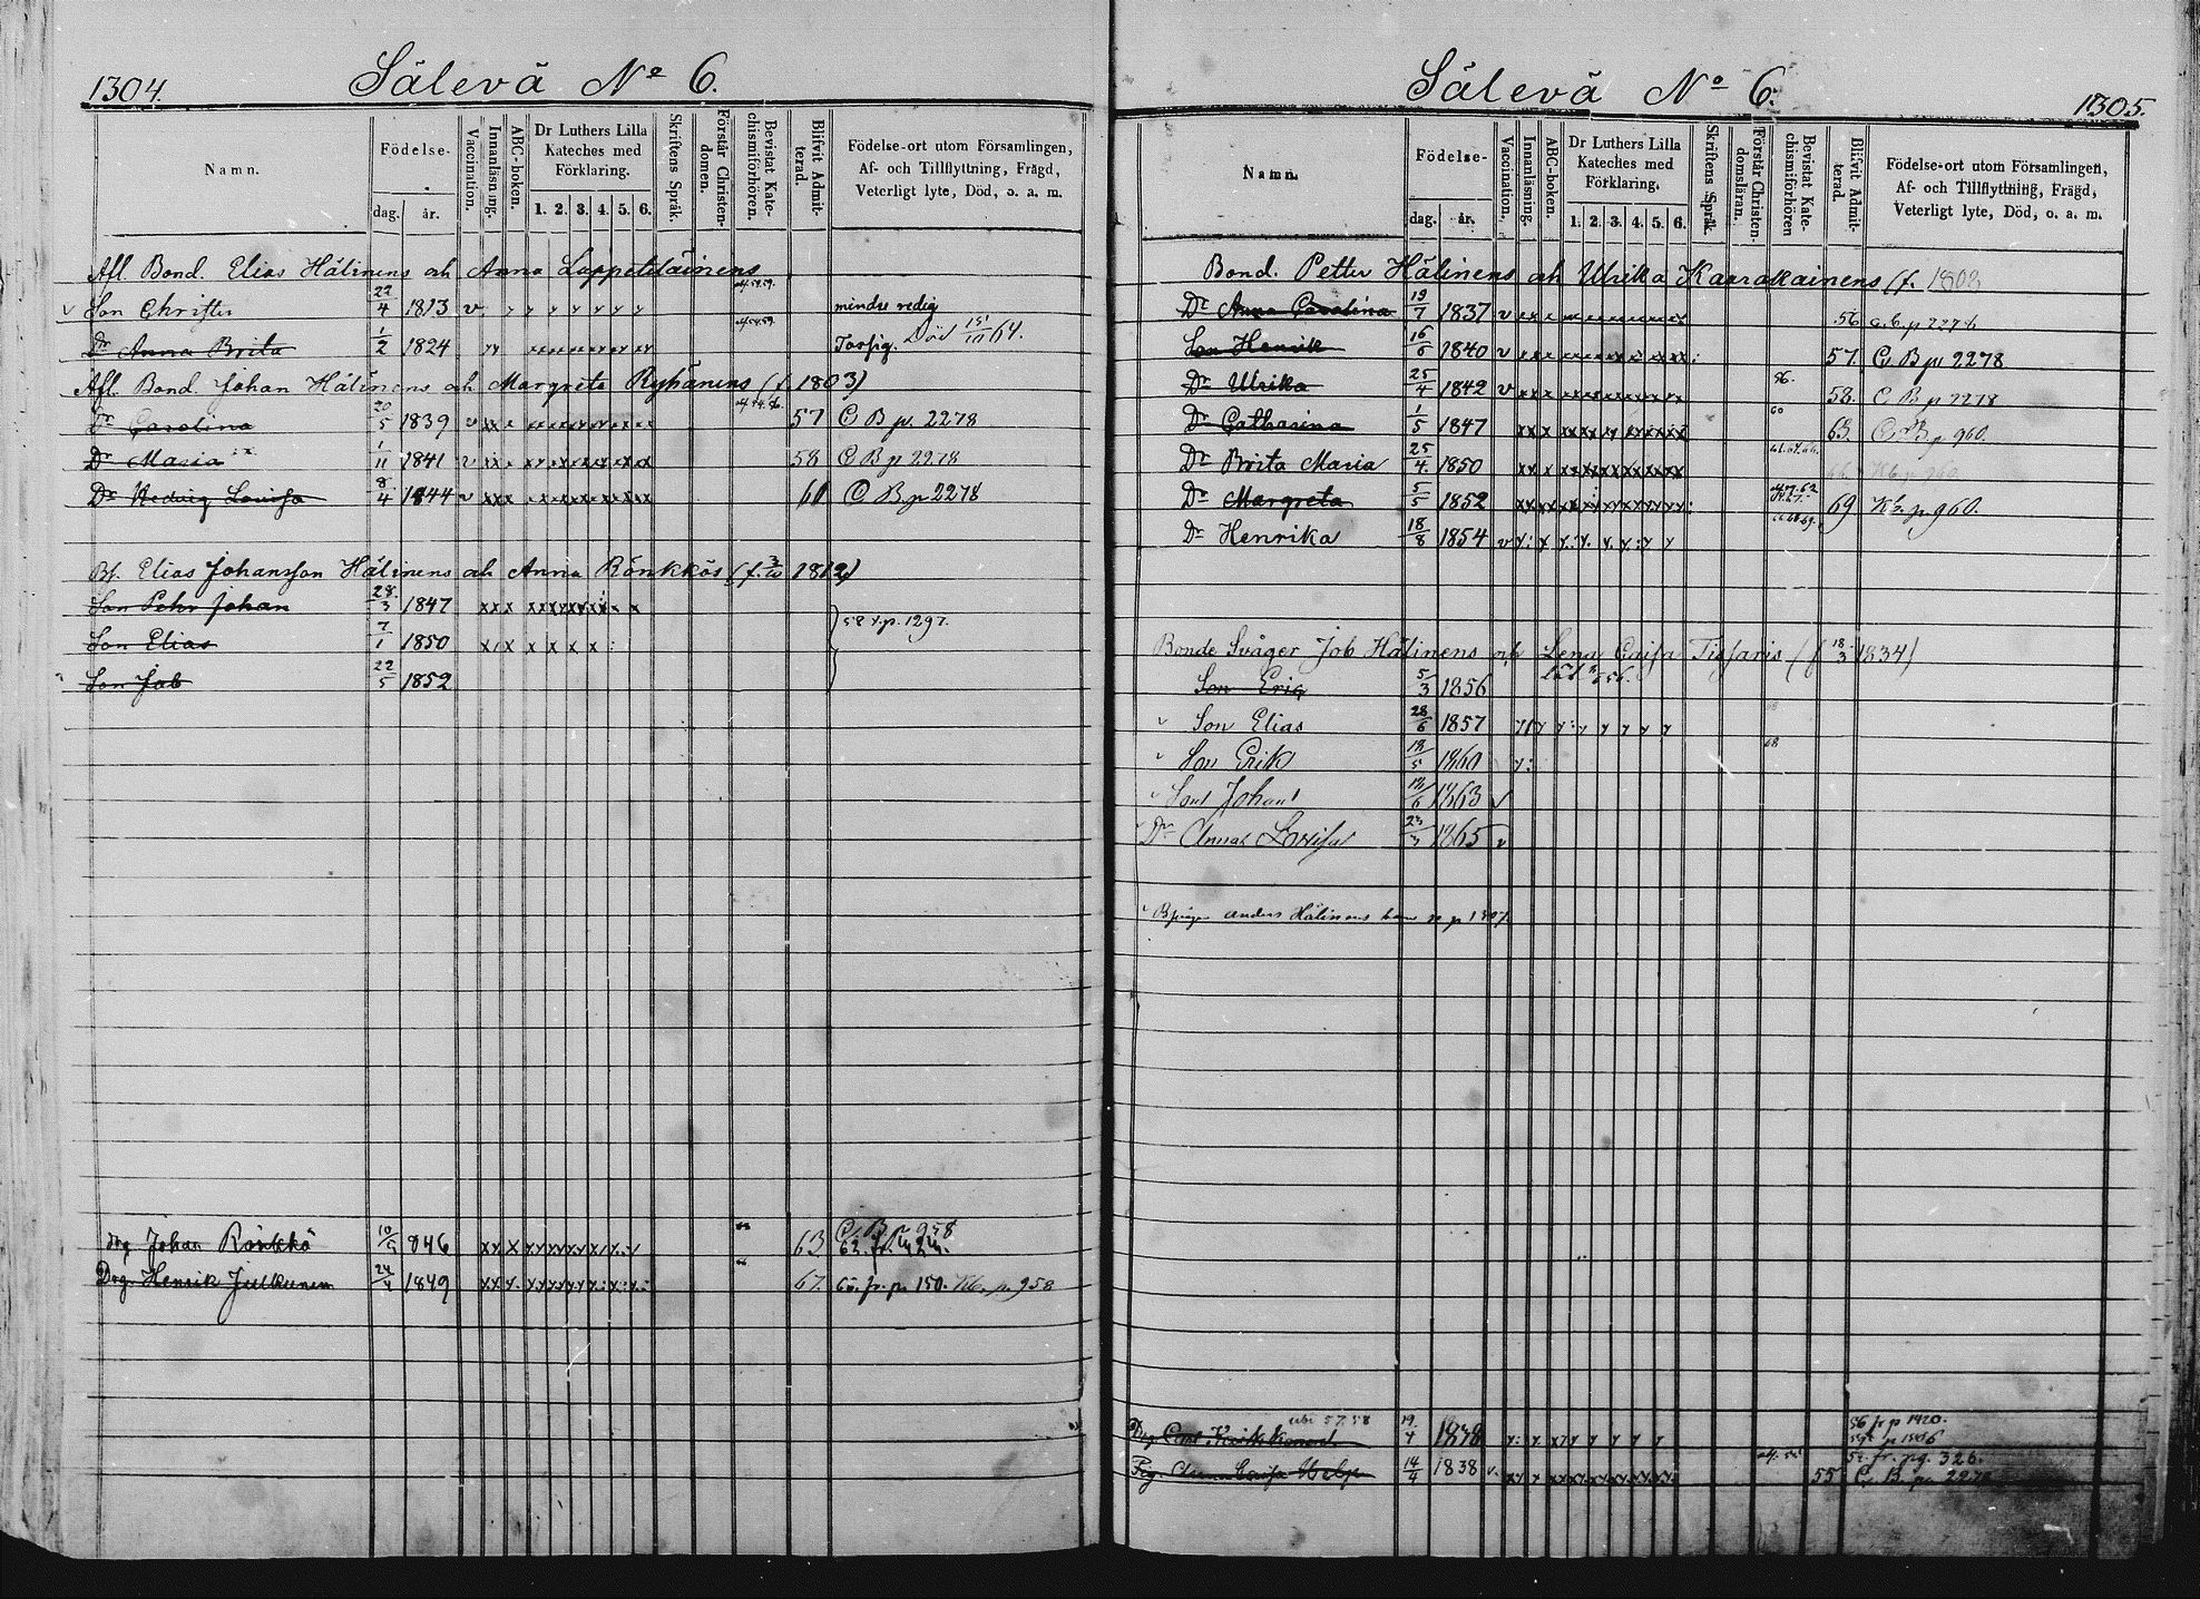 1304.
Sälevä No 6.
Namn.
Födelse-
dag.
år.
Vaccination.
Innanläsning.
ABC-boken.
Dr Luthers Lilla
Kateches med
Förklaring.
1. 2. 3. 4. 5. 6.
Skriftens Språk.
Förstår Christen-
domen.
Bevistat Kate-
chismiförhören.
Blifvit Admit-
terad.
Födelse-ort utom Församlingen,
Af- och Tillflyttning, Frägd,
Veterligt lyte, Död, o. a. m.
Afl. Bond. Elias Hälinens och Anna Lappeteläinens
Son Christer 22/4 1813 v mindre redig
Dr Anna Brita 1/2 1824 Torfig. Död 64.
Afl. Bond. Johan Hälinens och Margreta Ryhänens (f. 1803)
Dr Carolina 20/5 1839 v 57 C B p. 2278
Dr Maria 1/11 1841 v 58 C B p 2278
Dr Hedvig Lovisa 8/4 1844 v 60 C B p 2278
Bf. Elias Johansson Hälinens och Anna Rönkkös (f. 1812)
Son Pehr Johan 28/3 1847
Son Elias 7/1 1850 58 t.p. 1297.
Son Job 22/5 1852
drg Johan Rönkkö 10/9 846 63 C B p 958
Drg Henrik Julkunen 24/4 1849 67. 65. fr. p. 150. Kb. p. 958
1305.
Sälevä No 6.
Namn.
Födelse-
dag.
år.
Vaccination.
Innanläsning.
ABC-boken.
Dr Luthers Lilla
Kateches med
Förklaring.
1. 2. 3. 4. 5. 6.
Skriftens Språk.
Förstår Christen-
domsläran.
Bevistat Kate-
chismiförhören
Blifvit Admit-
terad.
Födelse-ort utom Församlingen,
Af- och Tillflyttning, Frägd,
Veterligt lyte, Död, o. a. m.
Bond. Petter Hälinens och Ulrika Kaarakainens (f. 1808
Dr Anna Carolina 19/7 1837 v 56 c.b.p 2278
Son Henrik 16/6 1840 v 57. C B p 2278
Dr Ulrika 25/4 1842 v 56. 58. C B p 2278
Dr Catharina 1/5 1847 60 63. C B p 960.
Dr Brita Maria 25/4. 1850 Kb p 960
Dr Margreta 5/5 1852 69 Kb. p 960.
Dr Henrika 18/8 1854 v
Bonde Svåger Job Hälinens och Lena Caisa Tissaris (f 18/3 1834)
Son Eric 5/3 1856
Son Elias 28/6 1857
Son Erik 1860 68
Son Johan 1863 v
Dr Anna Lovisa 23/3 1865 v
Anders Hälinens barn se p 1307.
57.58
Drg 19/4 1838 56 fr p 1420.
Pig. Anna Caisa 14/4 1838 v. 55 52. fr. pg. 326. C B. p. 2278